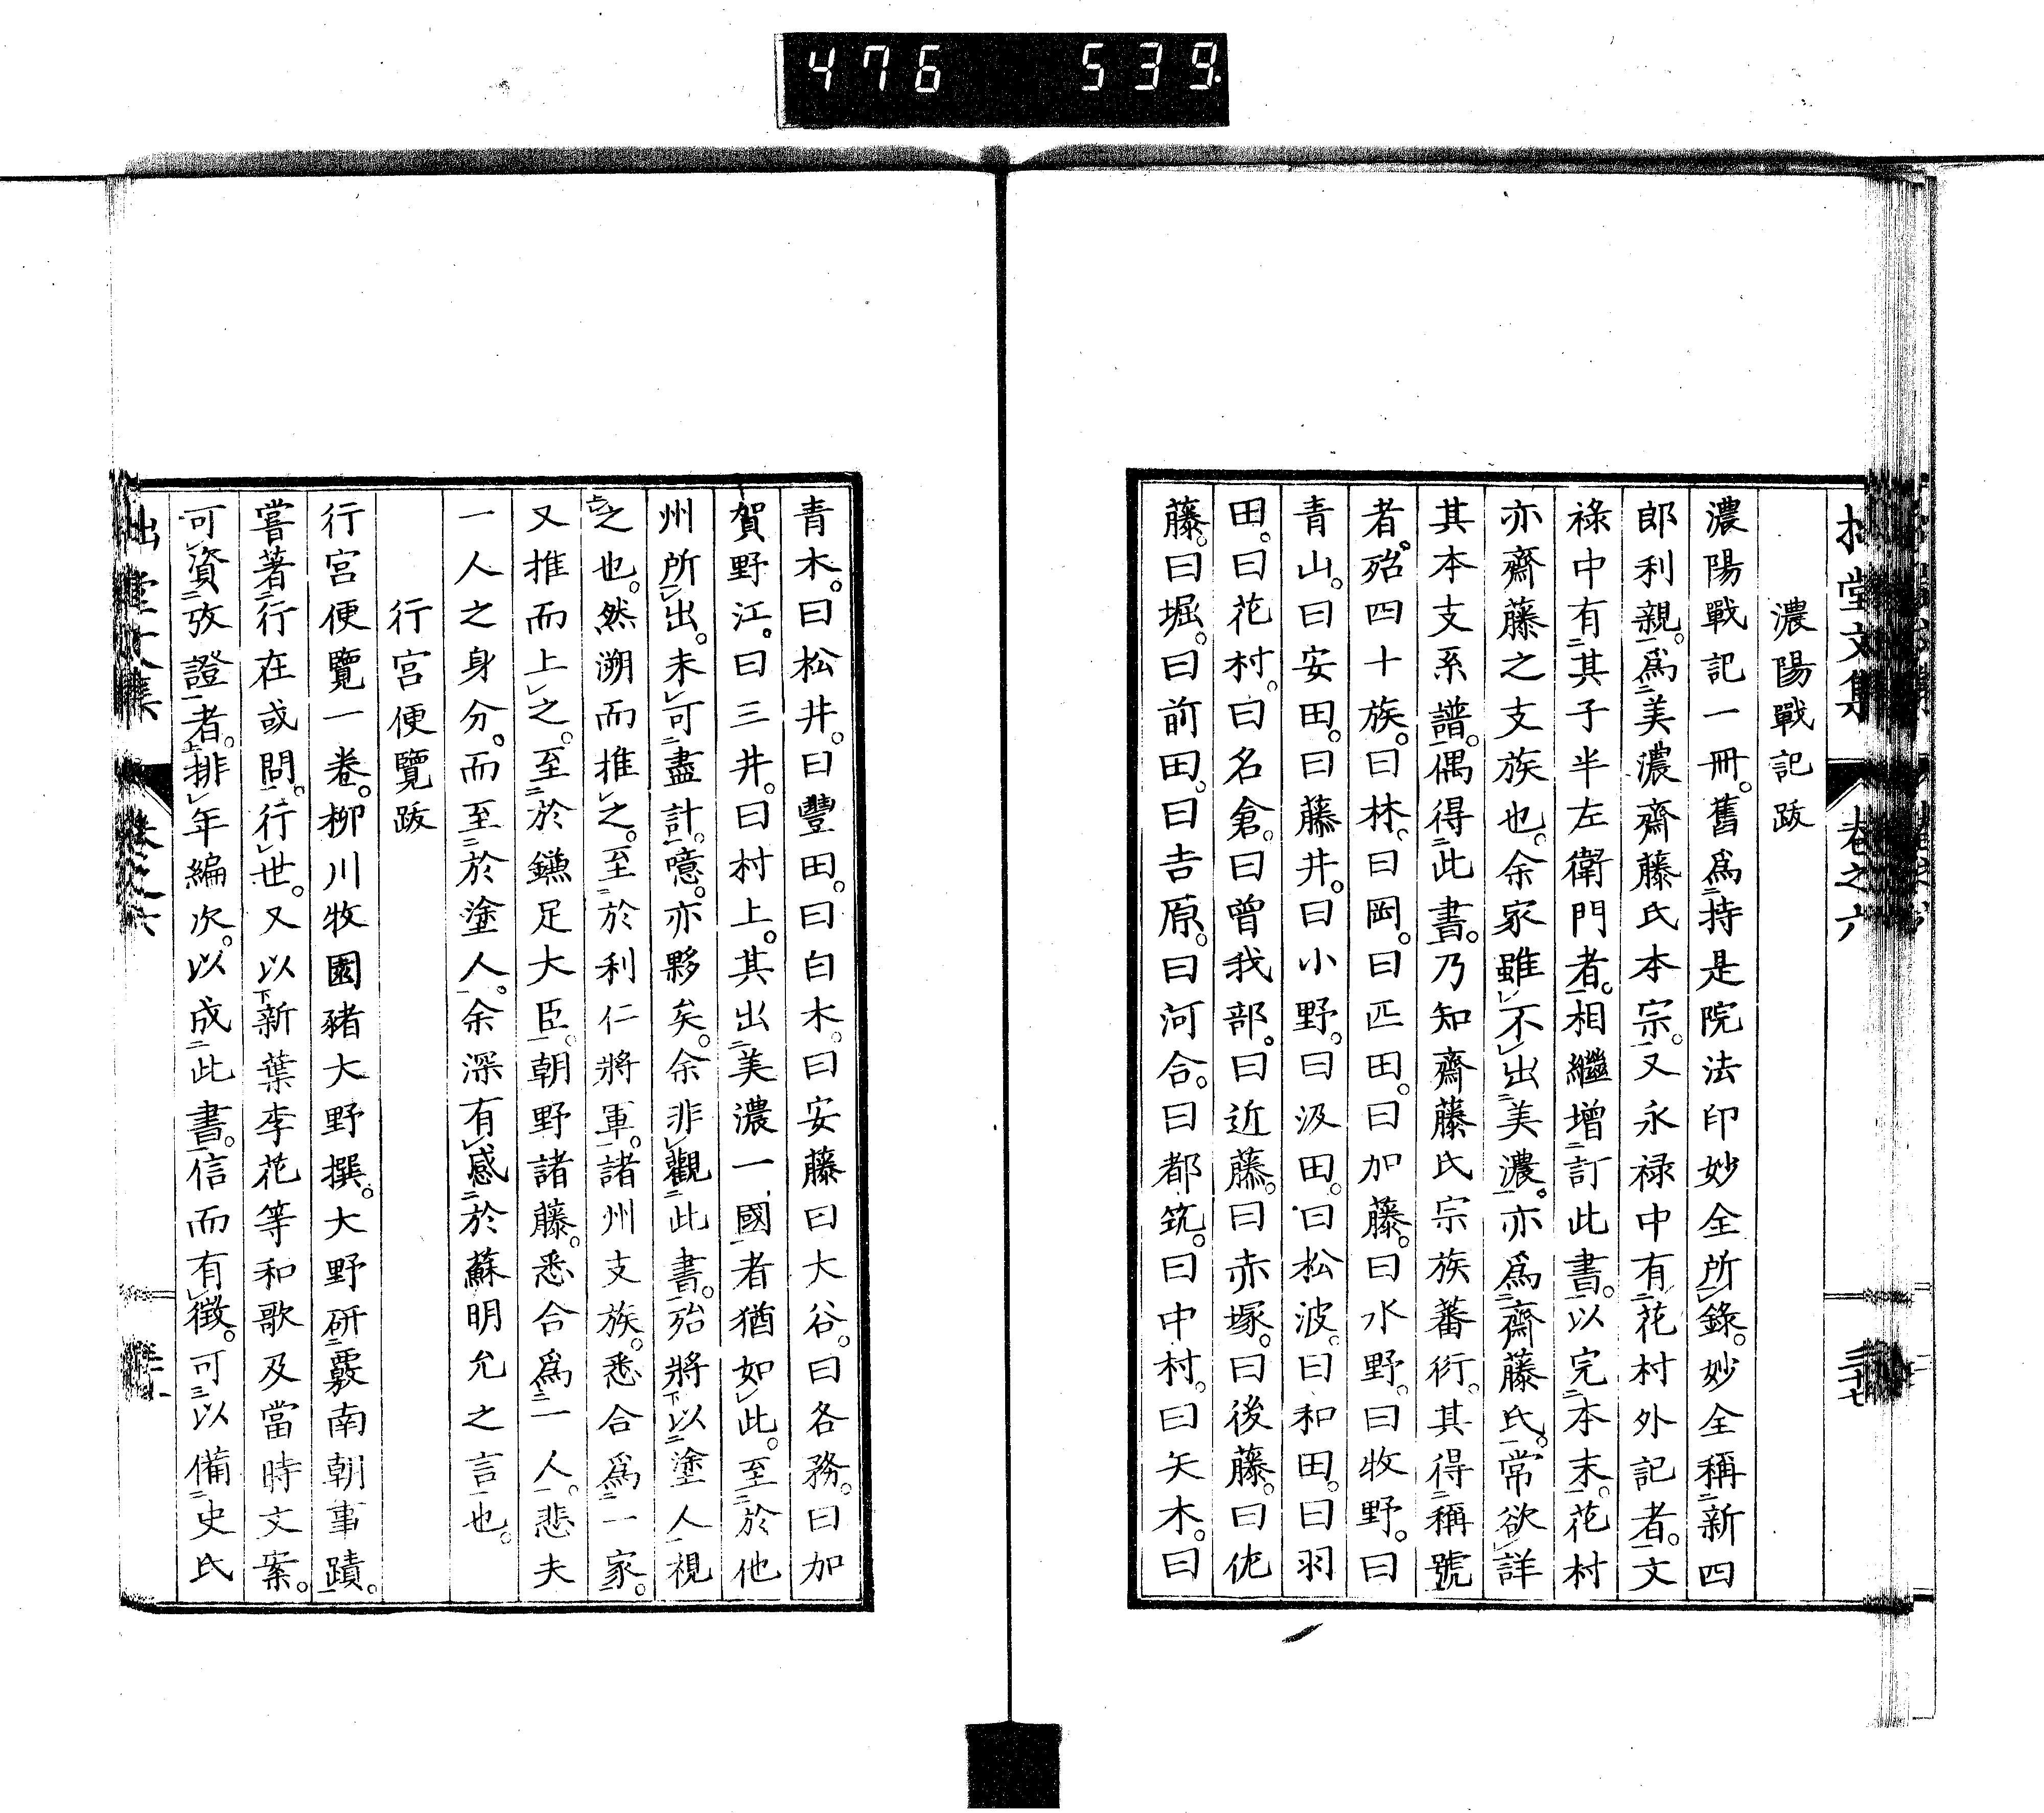 476 539
拙堂文集 卷之六 三十七
濃陽戰記跋
濃陽戰記一冊。舊爲持是院法印妙全所錄。妙全稱新四
郎利親。爲美濃齋藤氏本宗。又永祿中有花村外記者。文
祿中有其子半左衛門者。相繼增訂此書。以完本末。花村
亦齋藤之支族也。余家雖不出美濃。亦爲齋藤氏。常欲詳
其本支系譜。偶得此書。乃知齋藤氏宗族蕃衍。其得稱號
者。殆四十族。曰林。曰岡。曰匹田。曰加藤。曰水野。曰牧野。曰
青山。曰安田。曰藤井。曰小野。曰汲田。曰松波。曰和田。曰羽
田。曰花村。曰名倉。曰曾我部。曰近藤。曰赤塚。曰後藤。曰佗
藤。曰堀。曰前田。曰吉原。曰河合。曰都筑。曰中村。曰矢木。曰
青木。曰松井。曰豐田。曰白木。曰安藤曰大谷。曰各務。曰加
賀野江。曰三井。曰村上。其出美濃一國者猶如此。至於他
州所出。未可盡計。噫。亦夥矣。余非觀此書。殆將以塗人視
之也。然溯而推之。至於利仁將軍。諸州支族。悉合爲一家。
又推而上之。至於鎌足大臣。朝野諸藤。悉合爲一人。悲夫
一人之身分。而至於塗人。余深有感於蘇明允之言也。
行宮便覽跋
行宮便覽一卷。柳川牧園豬大野撰。大野研覈南朝事蹟。
嘗著行在或問。行世。又以新葉李花等和歌及當時文案。
可資攷證者。排年編次。以成此書。信而有徵。可以備史氏
拙堂文集 卷之六